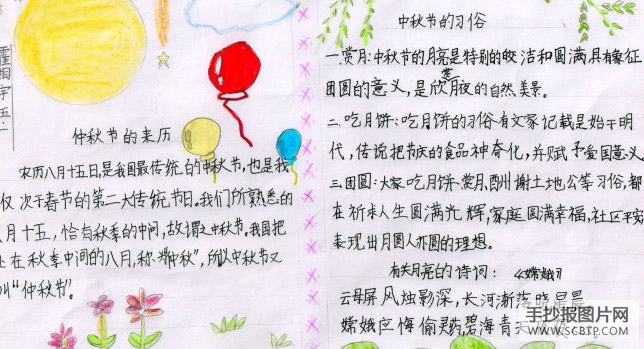 霍相宇 五.二
仲秋节的来历
农历八月十五日,是我国最传统的中秋节,也是我
仅次于春节的第二大传统节日。我们所熟悉的
八月十五,恰在秋季的中间,故谓之中秋节。我国把
处在秋季中间的八月,称为"仲秋",所以中秋节又
叫"仲秋节"。
中秋节的习俗
一.赏月:中秋节的月亮是特别的皎洁和圆满,具有象征
团圆的意义,是欣赏月夜的自然美景。
二.吃月饼:吃月饼的习俗有文字记载是始于明
代,传说把节庆的食品神奇化,并赋予爱国意义
三.团圆:大家吃月饼赏月,酬谢土地公等习俗,都
在祈求人生圆满光辉,家庭圆满幸福,社区平安
表现出月圆人亦圆的理想。
有关月亮的诗词:《嫦娥》
云母屏风烛影深,长河渐落晓星
嫦娥应悔偷灵药,碧海青天
手抄报图片网
WWW.SCBTP.COM